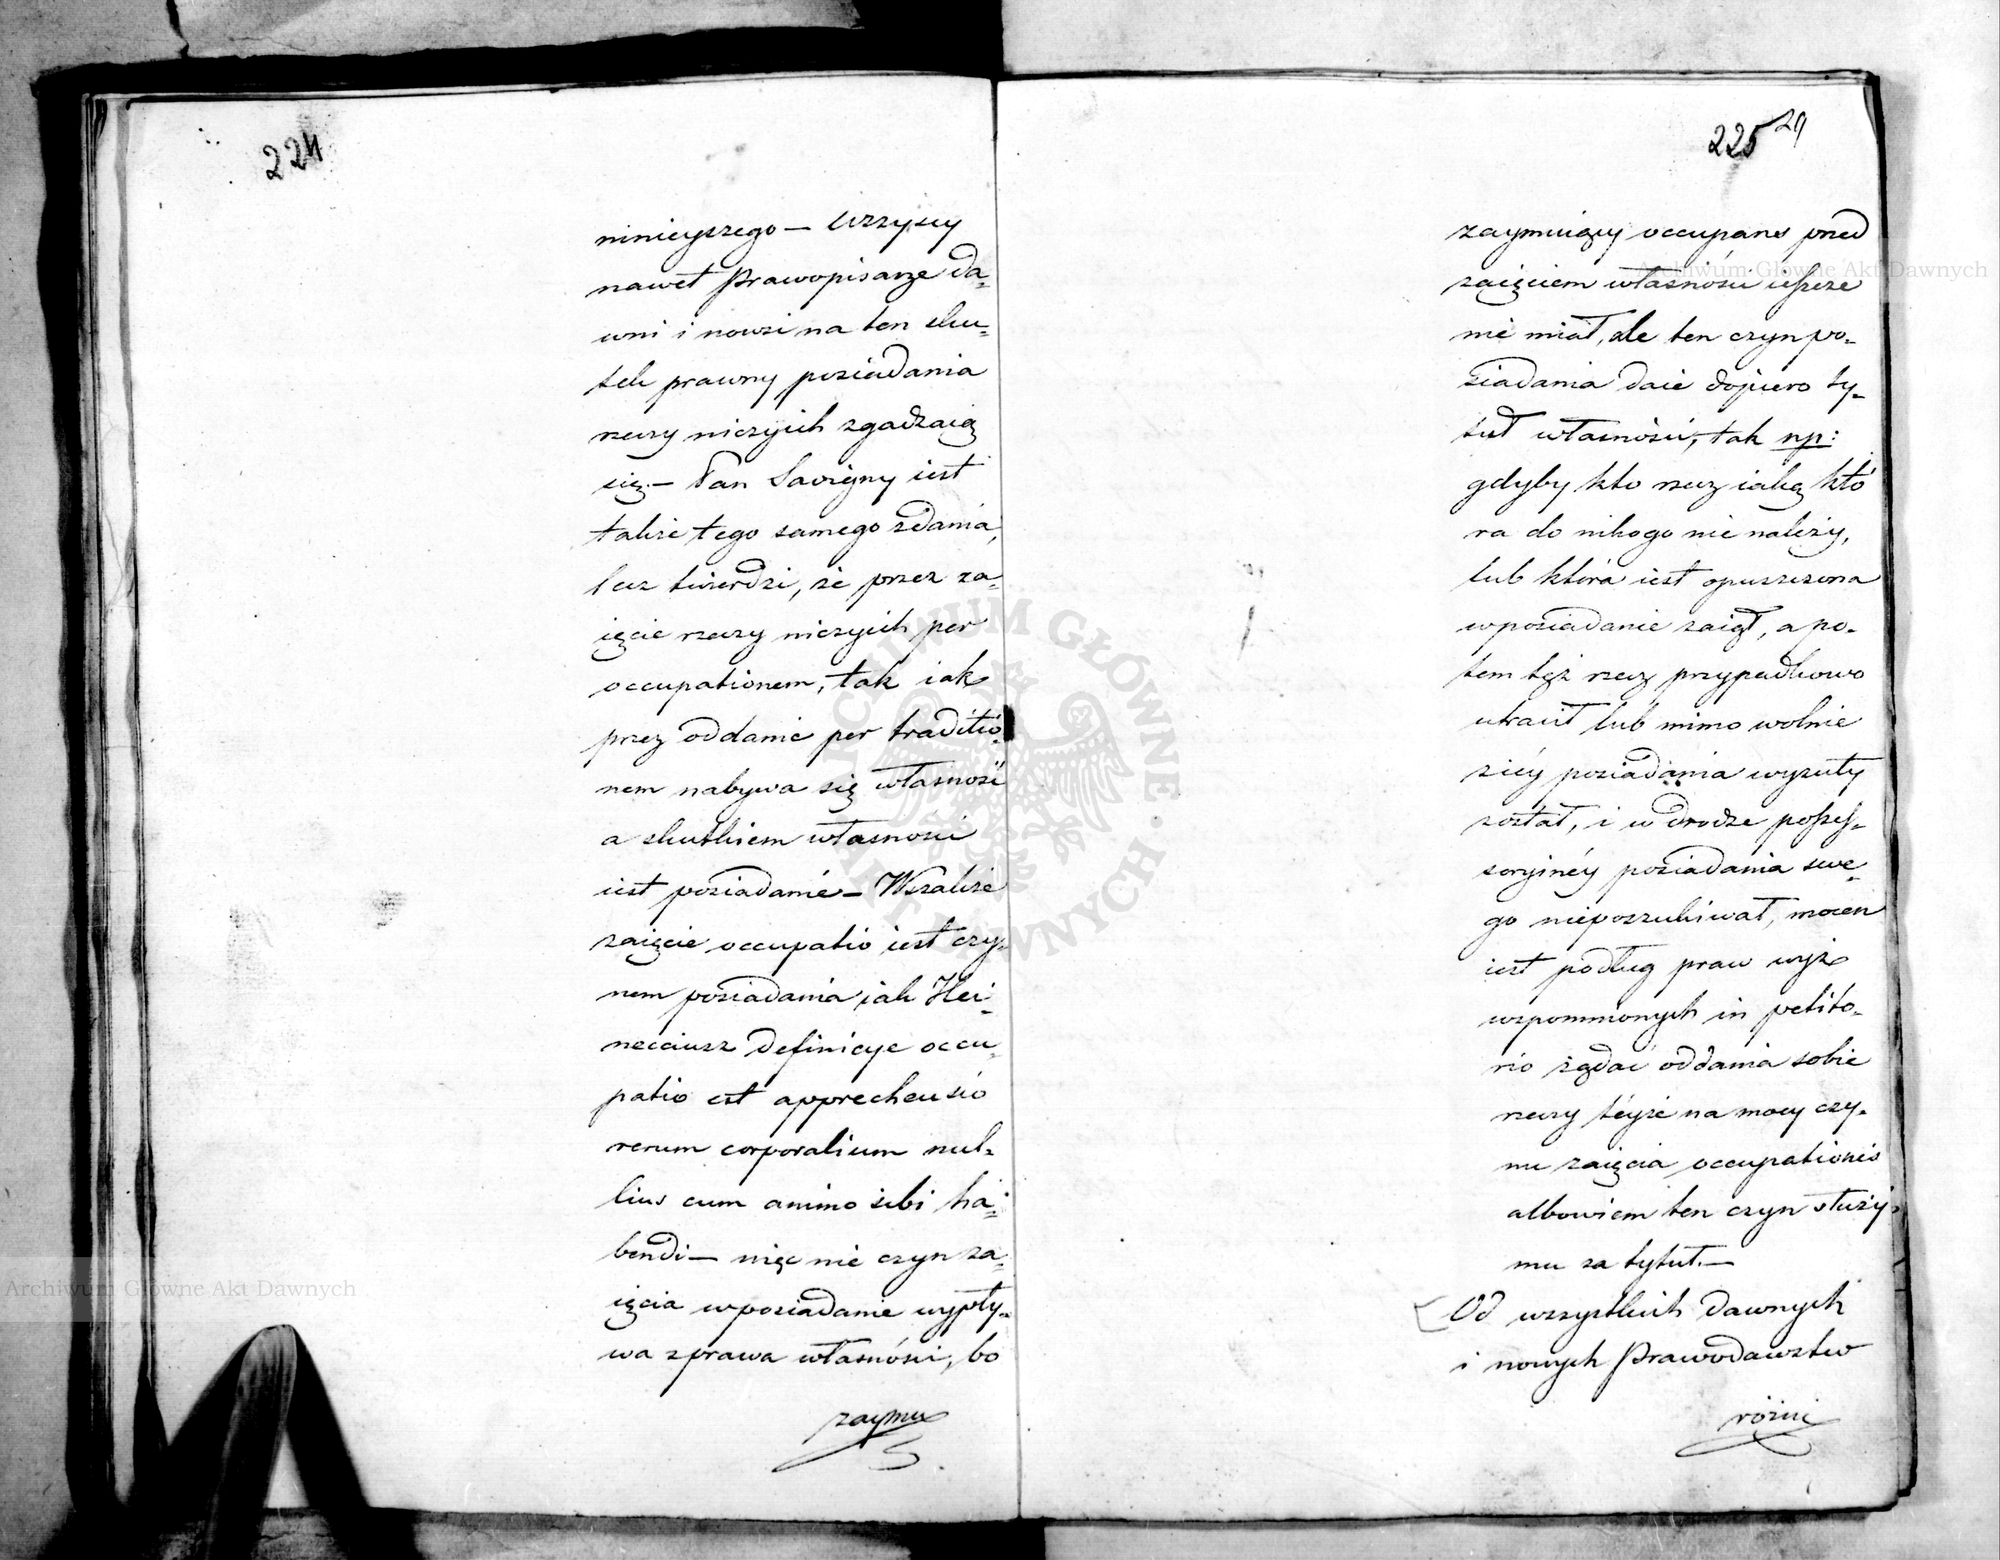 224
ninieyszego — Wszyscy
nawet Prawopisarze da-
wni i nowsi na ten sku-
tek prawny posiadania
rzeczy niczyich zgadzaią
się. — Pan Savigny iest
także tego samego zdania,
lecz twierdzi, że przez za-
ięcie rzeczy niczyich per
occupationem, tak iak
przez oddanie per traditio-
nem nabywa się własność
a skutkiem własności
iest posiadanie — Wszakże
zaięcie occupatio iest czy-
nem posiadania iak Hei-
necciusz definicye occu-
patio est apprechensio
rerum corporalium nul-
lius cum animo sibi ha-
bendi — więc nie czyn za-
ięcia w posiadanie wypły-
wa z prawa własności, bo
zaymu
225 29
zaymuiący occupans przed
zaięciem własności ieszcze
nie miał, ale ten czyn po-
siadania daie dopiero ty-
tuł własności, tak np:
gdyby kto rzecz iaką któ
ra do nikogo nie należy,
lub która iest opuszczona
w posiadanie zaiął, a po-
tem tęż rzecz przypadkowo
utracił lub mimo wolnie
z iéy posiadania wyzuty
został, i w drodze posses-
soryinéy posiadania swe-
go nieposzukiwał, mocen
iest podług praw wyż
wspomnionych in petito-
rio żądać oddania sobie
rzeczy téyże na mocy czy-
nu zaięcia occupationis
albowiem ten czyn służy
mu za tytuł. —
Od wszystkich dawnych
i nowych Prawodawstw
różni
Archiwum Główne Akt Dawnych
Archiwum Główne Akt Dawnych
ARCHIWUM GŁÓWNE AKT DAWNYCH